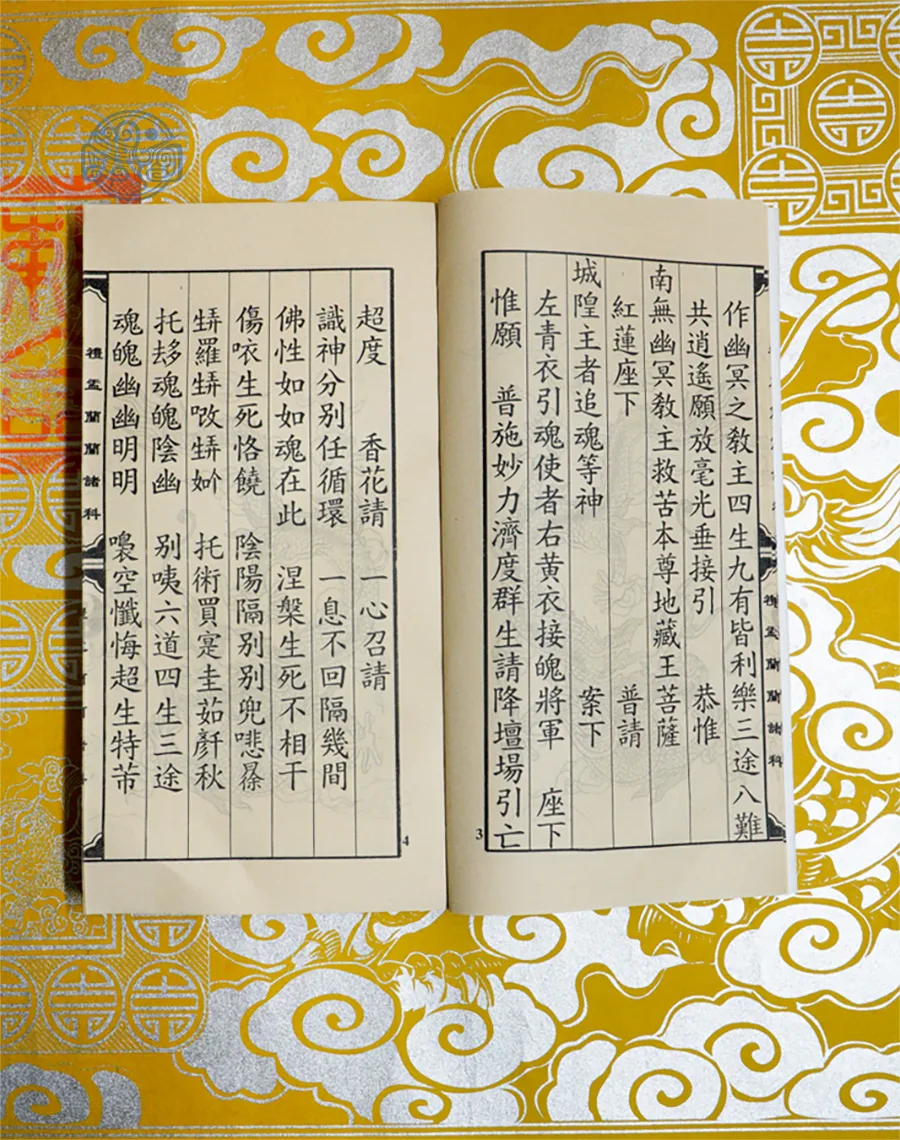 作幽冥之教主四生九有皆利樂三途八難
共逍遙願放毫光垂接引 恭惟
南無幽冥教主救苦本尊地藏王菩薩
紅蓮座下 普請
城隍主者追魂等神 案下
左青衣引魂使者右黃衣接魄將軍 座下
惟願 普施妙力濟度群生請降壇場引亡
3
超度 香花請 一心召請
識神分別任循環 一息不回隔幾間
佛性如如魂在此 涅槃生死不相干
傷 生死恪饒 陰陽隔別別兜
羅 托術買寔圭茹 秋
托 魂魄陰幽 別咦六道四生三途
魂魄幽幽明明 空懺悔超生特
4
盂蘭蘭諸科